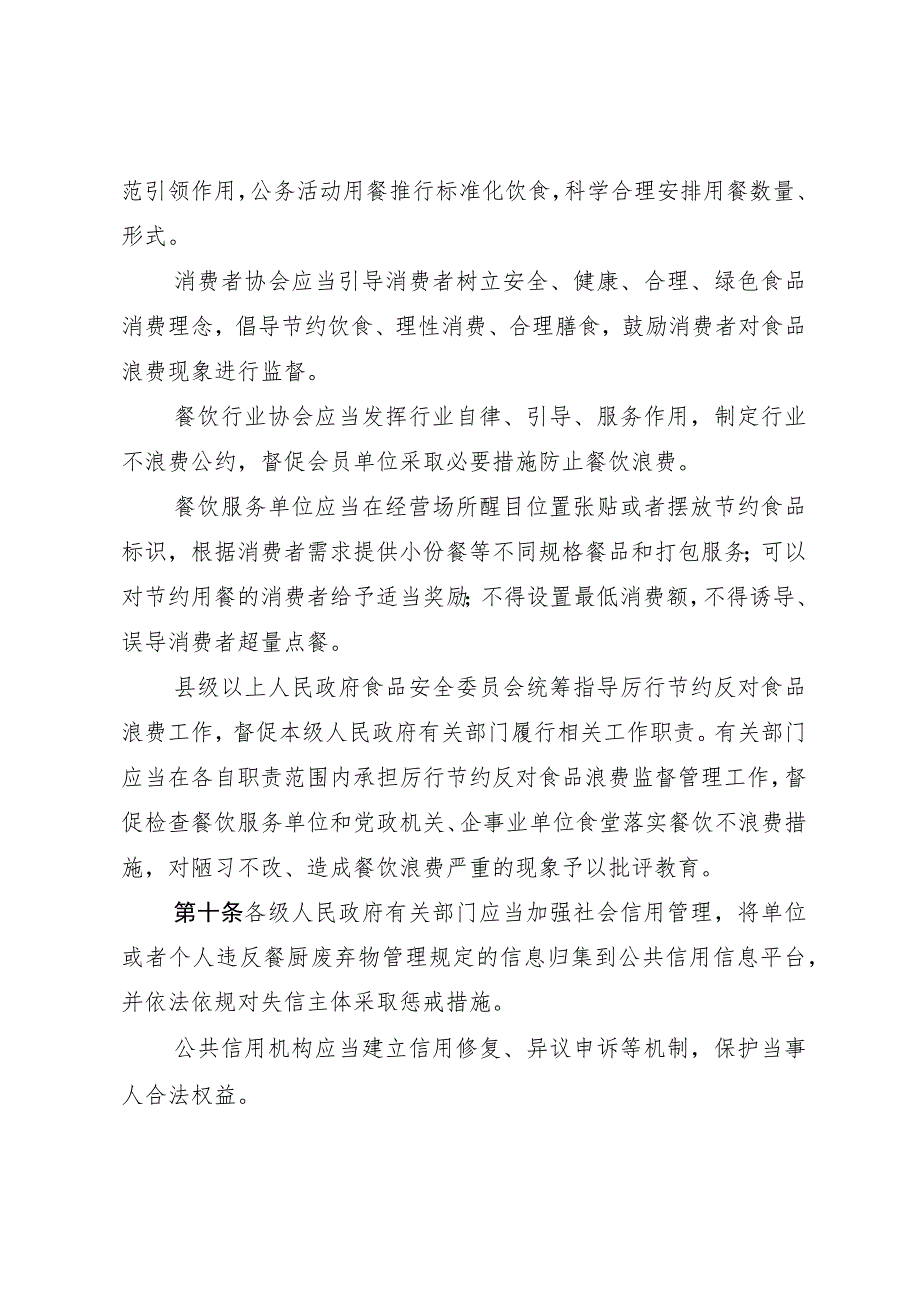 范引领作用，公务活动用餐推行标准化饮食，科学合理安排用餐数量、
形式。
消费者协会应当引导消费者树立安全、健康、合理、绿色食品
消费理念，倡导节约饮食、理性消费、合理膳食，鼓励消费者对食品
浪费现象进行监督。
餐饮行业协会应当发挥行业自律、引导、服务作用，制定行业
不浪费公约，督促会员单位采取必要措施防止餐饮浪费。
餐饮服务单位应当在经营场所醒目位置张贴或者摆放节约食品
标识，根据消费者需求提供小份餐等不同规格餐品和打包服务；可以
对节约用餐的消费者给予适当奖励；不得设置最低消费额，不得诱导、
误导消费者超量点餐。
县级以上人民政府食品安全委员会统筹指导厉行节约反对食品
浪费工作，督促本级人民政府有关部门履行相关工作职责。有关部门
应当在各自职责范围内承担厉行节约反对食品浪费监督管理工作，督
促检查餐饮服务单位和党政机关、企事业单位食堂落实餐饮不浪费措
施，对陋习不改、造成餐饮浪费严重的现象予以批评教育。
第十条各级人民政府有关部门应当加强社会信用管理，将单位
或者个人违反餐厨废弃物管理规定的信息归集到公共信用信息平台，
并依法依规对失信主体采取惩戒措施。
公共信用机构应当建立信用修复、异议申诉等机制，保护当事
人合法权益。